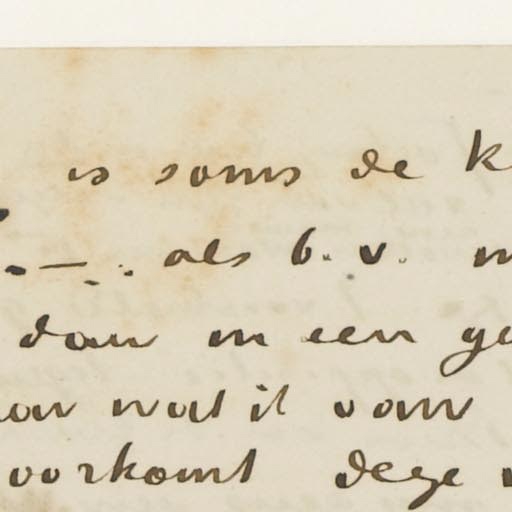 is soms de k
als b. v. m
dan in een ge
wat ik van
voorkomt deze